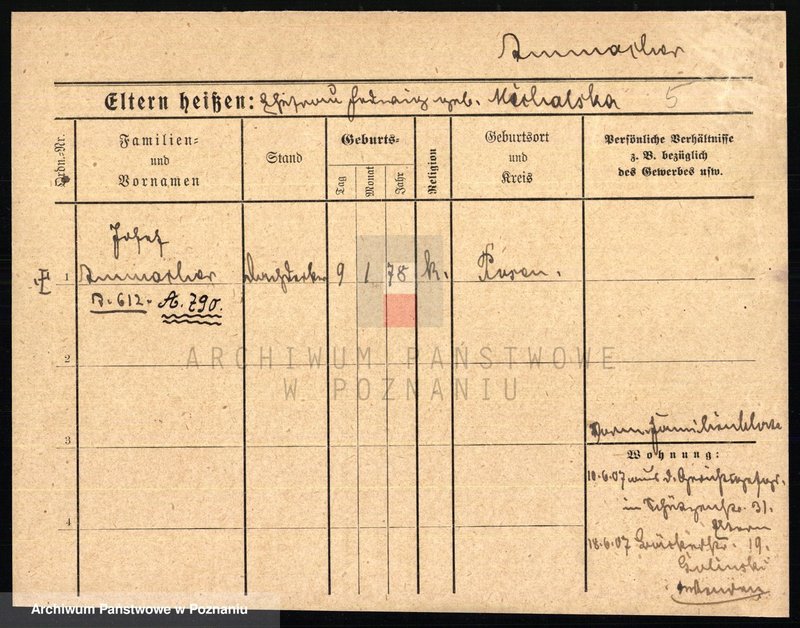 Ammacher
Eltern heißen: Ehefrau Hedwig geb. Michalska 5
Ordn.-Nr.
Familien-
und
Vornamen
Stand
Geburts-
Tag
Monat
Jahr
Religion
Geburtsort
und
Kreis
Persönliche Verhältnisse
z. B. bezüglich
des Gewerbes usw.
Josef
1 Ammacher Dachdecker 9 1 78 k. Posen.
D. 612. A. 790.
2
ARCHIWUM PAŃSTWOWE
W POZNANIU
3
Familienblatt
Wohnung:
10.6.07 aus d.
in Schützenstr. 31.
Eltern
4
18.6.07 Bäckerstr. 19.
Golinski
Archiwum Państwowe w Poznaniu